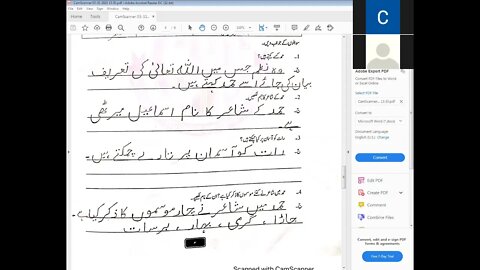 CamScanner 03-31-2021 13.33.pdf - Adobe Acrobat Reader DC (32-bit)
سوالوں کے جواب دیں۔
حمد کسے کہتے ہیں؟
وہ نظم جس میں اللہ تعالیٰ کی تعریف
بیان کی جائے اسے حمد کہتے ہیں۔
حمد کے شاعر کا نام لکھیں۔
حمد کے شاعر کا نام اسماعیل میرٹھی
ہے
رات کو آسمان پر کیا چمکتے ہیں؟
رات کو آسمان پر تارے چمکتے ہیں۔
حمد میں شاعر نے چار موسموں کا ذکر کیا ہے۔
جاڑا، گرمی، بہار، برسات
Scanned with CamScanner
C
Adobe Export PDF
Convert PDF Files to Word or Excel Online
Select PDF File
Convert to
Microsoft Word (*.docx)
Document Language:
English (U.S.) Change
Convert
Edit PDF
Create PDF
Comment
Combine Files
Convert, edit and e-sign PDF forms & agreements
Free 7-Day Trial